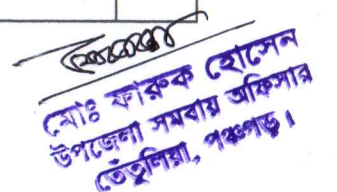 মোঃ ফারুক হোসেন
উপজেলা সমবায় অফিসার
তেঁতুলিয়া, পঞ্চগড়।